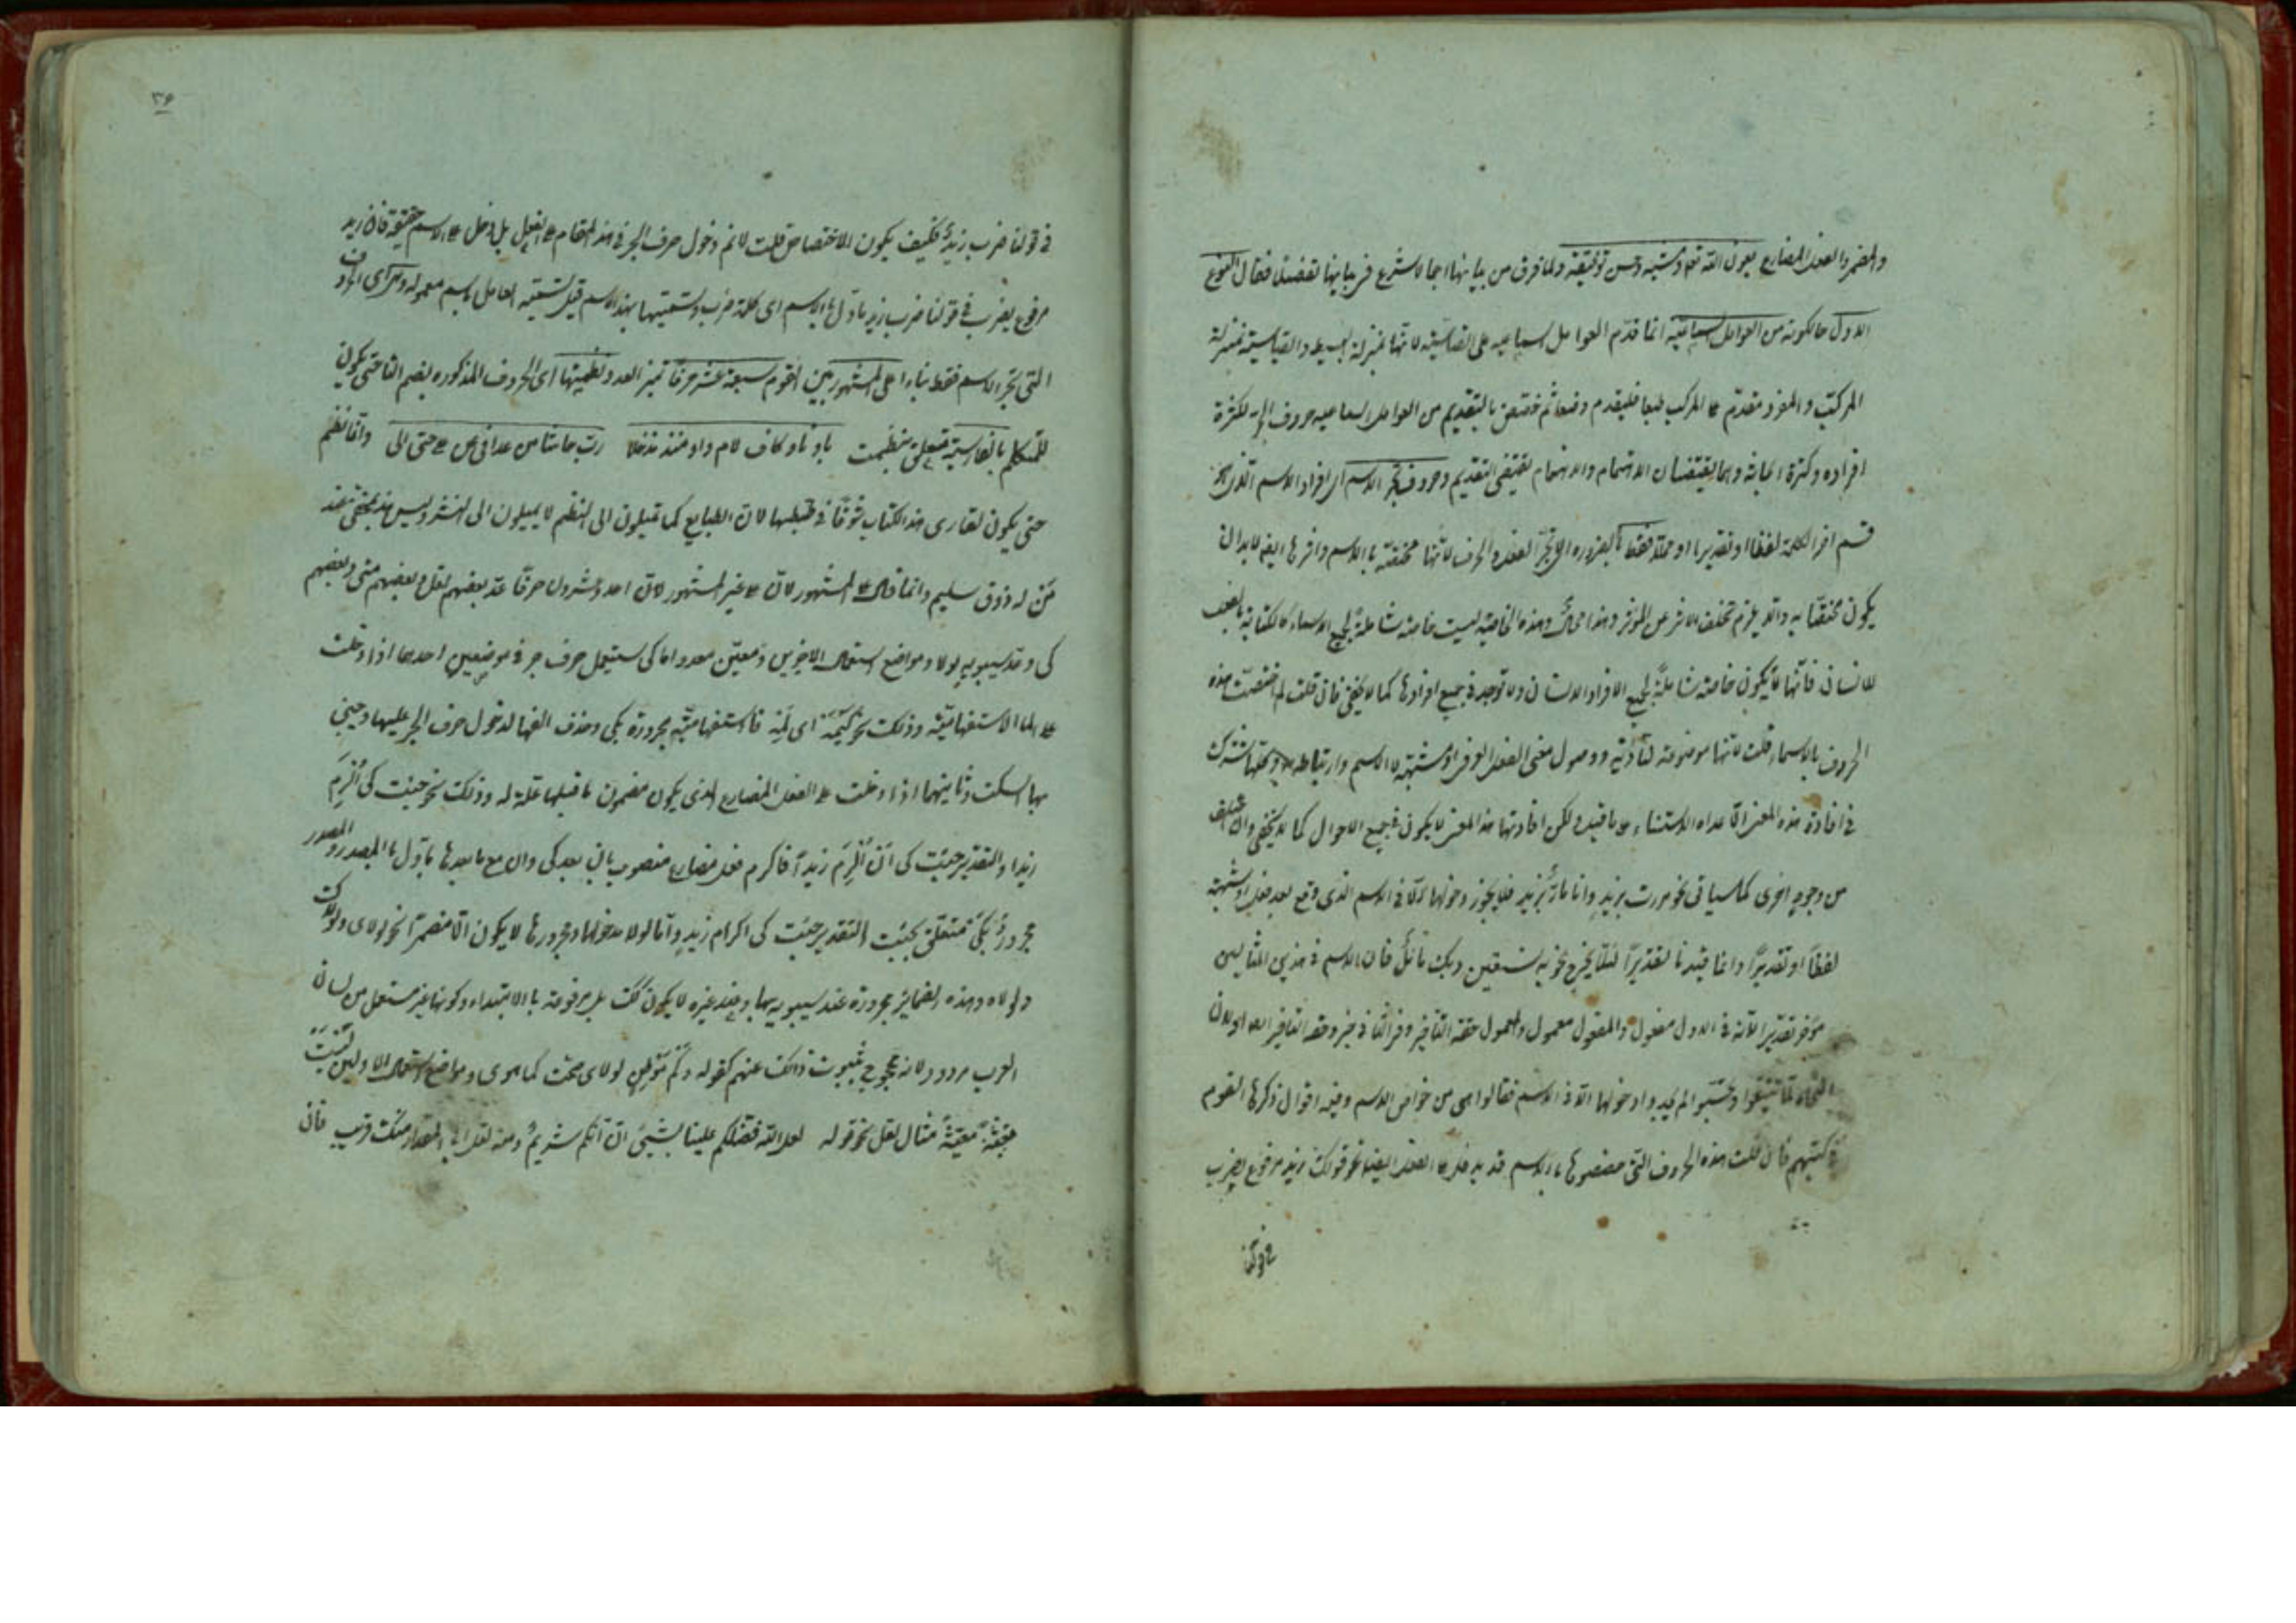 والمضمر والفعل المضارع بعون الله تعالى ومشيته وحسن توفيقه ولما فرق من بيانها اجمالا شرع في بيانها تفصيلا فقال النوع
الاول حالكونه من العوامل السماعية انما قدم العوامل السماعية على القياسية لانها بمنزلة البسيط والقياسية بمنزلة
المركب والمفرد مقدم على المركب طبعا فليقدم وضعا ثم بالتقديم من العوامل السماعية حروف الجر لكثرة
افراده وكثرة وهما يقتضيان الاهتمام والاهتمام يقتضى التقديم وحروف تجر الاسم اى افراد الاسم
قسم اخر الكلمة لفظا او تقديرا او محلا فقط اى لا تجر الفعل والحرف لانها مختصة بالاسم واثرها ايضا لابد ان
يكون مختصا به والا يلزم تخلف الاثر عن المؤثر وهذا محال وهذه الخاصة ليست خاصة شاملة لجميع الاسماء كالكتابة بالفعل
للانسان فانها لا يكون خاصة شاملة لجميع الافراد الانسان ولا توجد في جميع افرادها كما لا يخفى فان قلت لم اختصت هذه
الحروف بالاسماء قلت لانها موضوعة لتأدية ووصول معنى الفعل او شبهه الى الاسم وارتباطه
في افادة هذه المعنى الا عداه الاستثناء ولكن افادتها هذا المعنى لا يكون في جميع الاحوال كما لا يخفى وان
من وجوه اخرى كما سياتى نحو مررت بزيد وانا مار بزيد فلا يجوز دخولها الا في الاسم الذى وقع بعد فعل او شبهه
لفظا او تقديرا وانما قيدنا تقديرا لئلا يخرج نحو به نستعين وبك فان الاسم في هذين المثالين
مؤخر تقديرا لانه في الاول مفعول والمفعول معمول والمعمول حقه التأخير وفي الثانى خبر وحقه التأخير ايضا ولان
النحاة لما تتبعوا لم يجدوا دخولها الا في الاسم فقالوا هى من خواص الاسم وفيه اقوال ذكرها القوم
في كتبهم فان قلت هذه الحروف التى بالاسم قد يدخل على الفعل ايضا نحو قولك زيد مرفوع بضرب
في قولنا
٣٦
في قولنا ضرب زيد فكيف يكون الاختصاص قلت لانم دخول حرف الجر في هذا المقام على الفعل بل دخل على الاسم حقيقة فان زيد
مرفوع بضرب في قولنا ضرب زيد مأول بالاسم اى كلمة ضرب وتسميتها بهذا الاسم قبل تسمية العامل باسم معموله
التى تجر الاسم فقط بناء على المشهور بين القوم سبعة عشر حرفا تميز العدد ونظمتها اى الحروف المذكورة بضم التا حتى يكون
للمتكلم بالفارسية متعلق بنظمت باو تاو كاف لام واو منذ مذ خلا رب حاشا من عدا في عن على حتى الى وانما نظم
حتى يكون لقارى هذا الكتاب شوقا في ضبطها لان الطبايع كما تميلون الى النظم لا يميلون الى النثر وليس هذا بمخفى عند
من له ذوق سليم وانما قال على المشهور لان على غير المشهور لان احد وعشرون حرفا عد بعضهم لعل وبعضهم متى وبعضهم
كى وعد سيبويه لولا ومواضع استعمال الاخرين ومعين معدود اما كى ستعمل حرف جر في موضعين احدهما اذا دخلت
على ما الاستفهامية وذلك نحو كيمه اى لمه فما استفهامية مجرورة بكى وحذف الفها لدخول حرف الجر عليها وجيئ
بهاء السكت وثانيهما اذا دخلت على الفعل المضارع الذى يكون مضمون ما قبلها علة له وذلك نحو جيئت كى اكرم
زيدا والتقدير جيئت كى ان اكرم زيدا فاكرم فعل مضارع منصوب بان بعد كى وان مع ما بعدها مأول بالمصدر والمصدر
مجرور بكى متعلق بجيئت التقدير جيئت كى اكرام زيد واما لولا مدخولها ومجرورها لا يكون الا مضمرا نحو لولاى ولولاك
ولولاه وهذه الضماير مجرورة عند سيبويه بها وعند غيره لا يكون كك بل مرفوعة بالابتداء وكونها غير مستعمل من لسان
العرب مردود لانه محجوج بثبوت ذلك عنهم كقوله وكم موطن لولاى طحت كما هوى ومواضع استعمال الاولين ليست
محققة معينة مثال لعل نحو قوله لعل الله فضلكم علينا بشيئ ان امكم شريم ومنه لعل ابى المغوار منك قريب فان